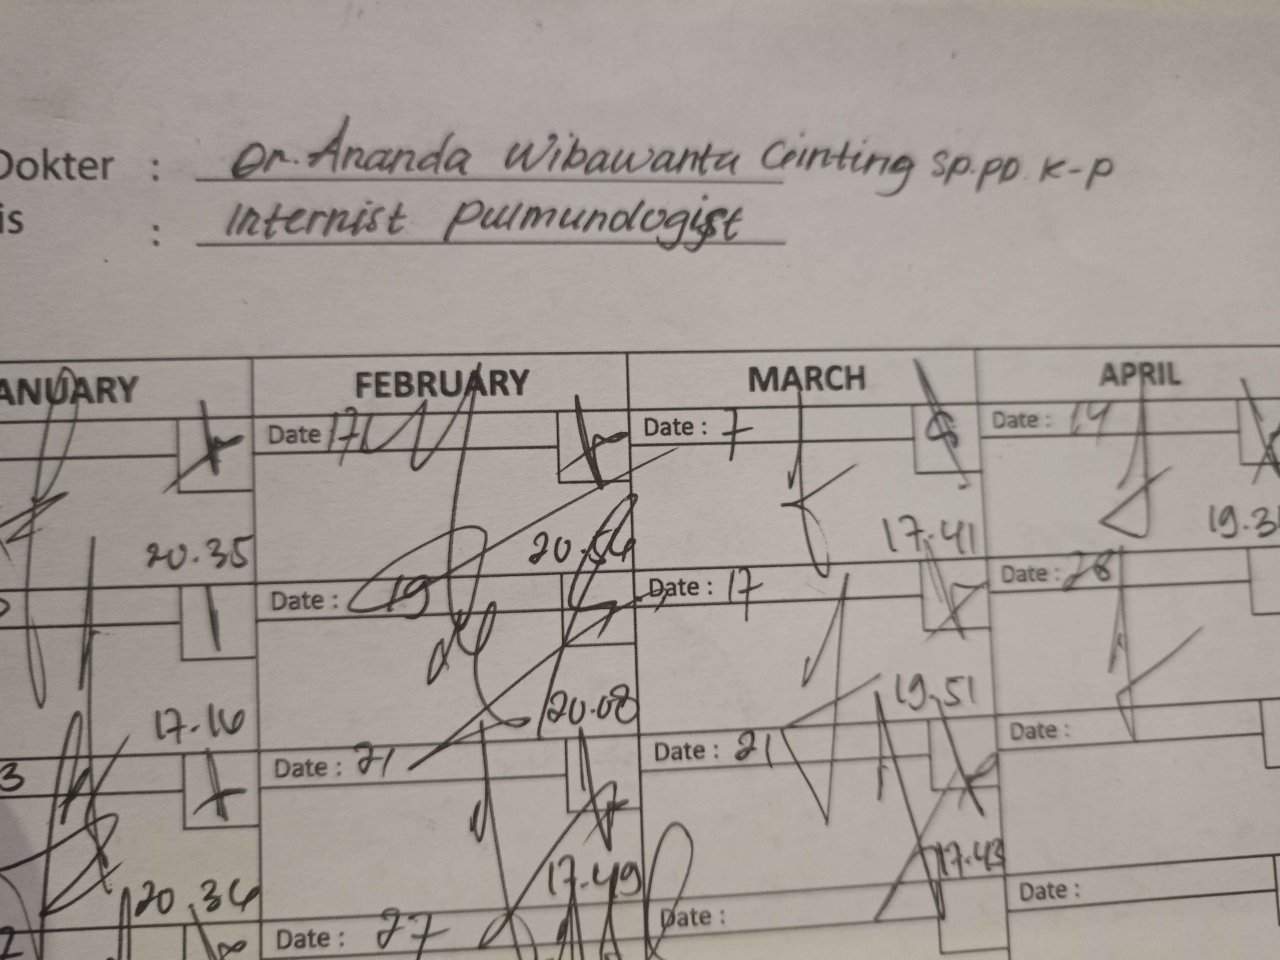 Dokter : Dr. Ananda Wibawanta Ginting Sp.PD. K-P
is : Internist Pulmundologist
ANUARY FEBRUARY MARCH APRIL
Date 17 Date : 7 Date : 14
20.35 20.54 17.41 19.3
Date : 19 Date : 17 Date : 28
17.16 20.08 19.51
3 Date : 21 Date : 21 Date :
20.34 17.49 17.43
2 Date : 27 Date : Date :